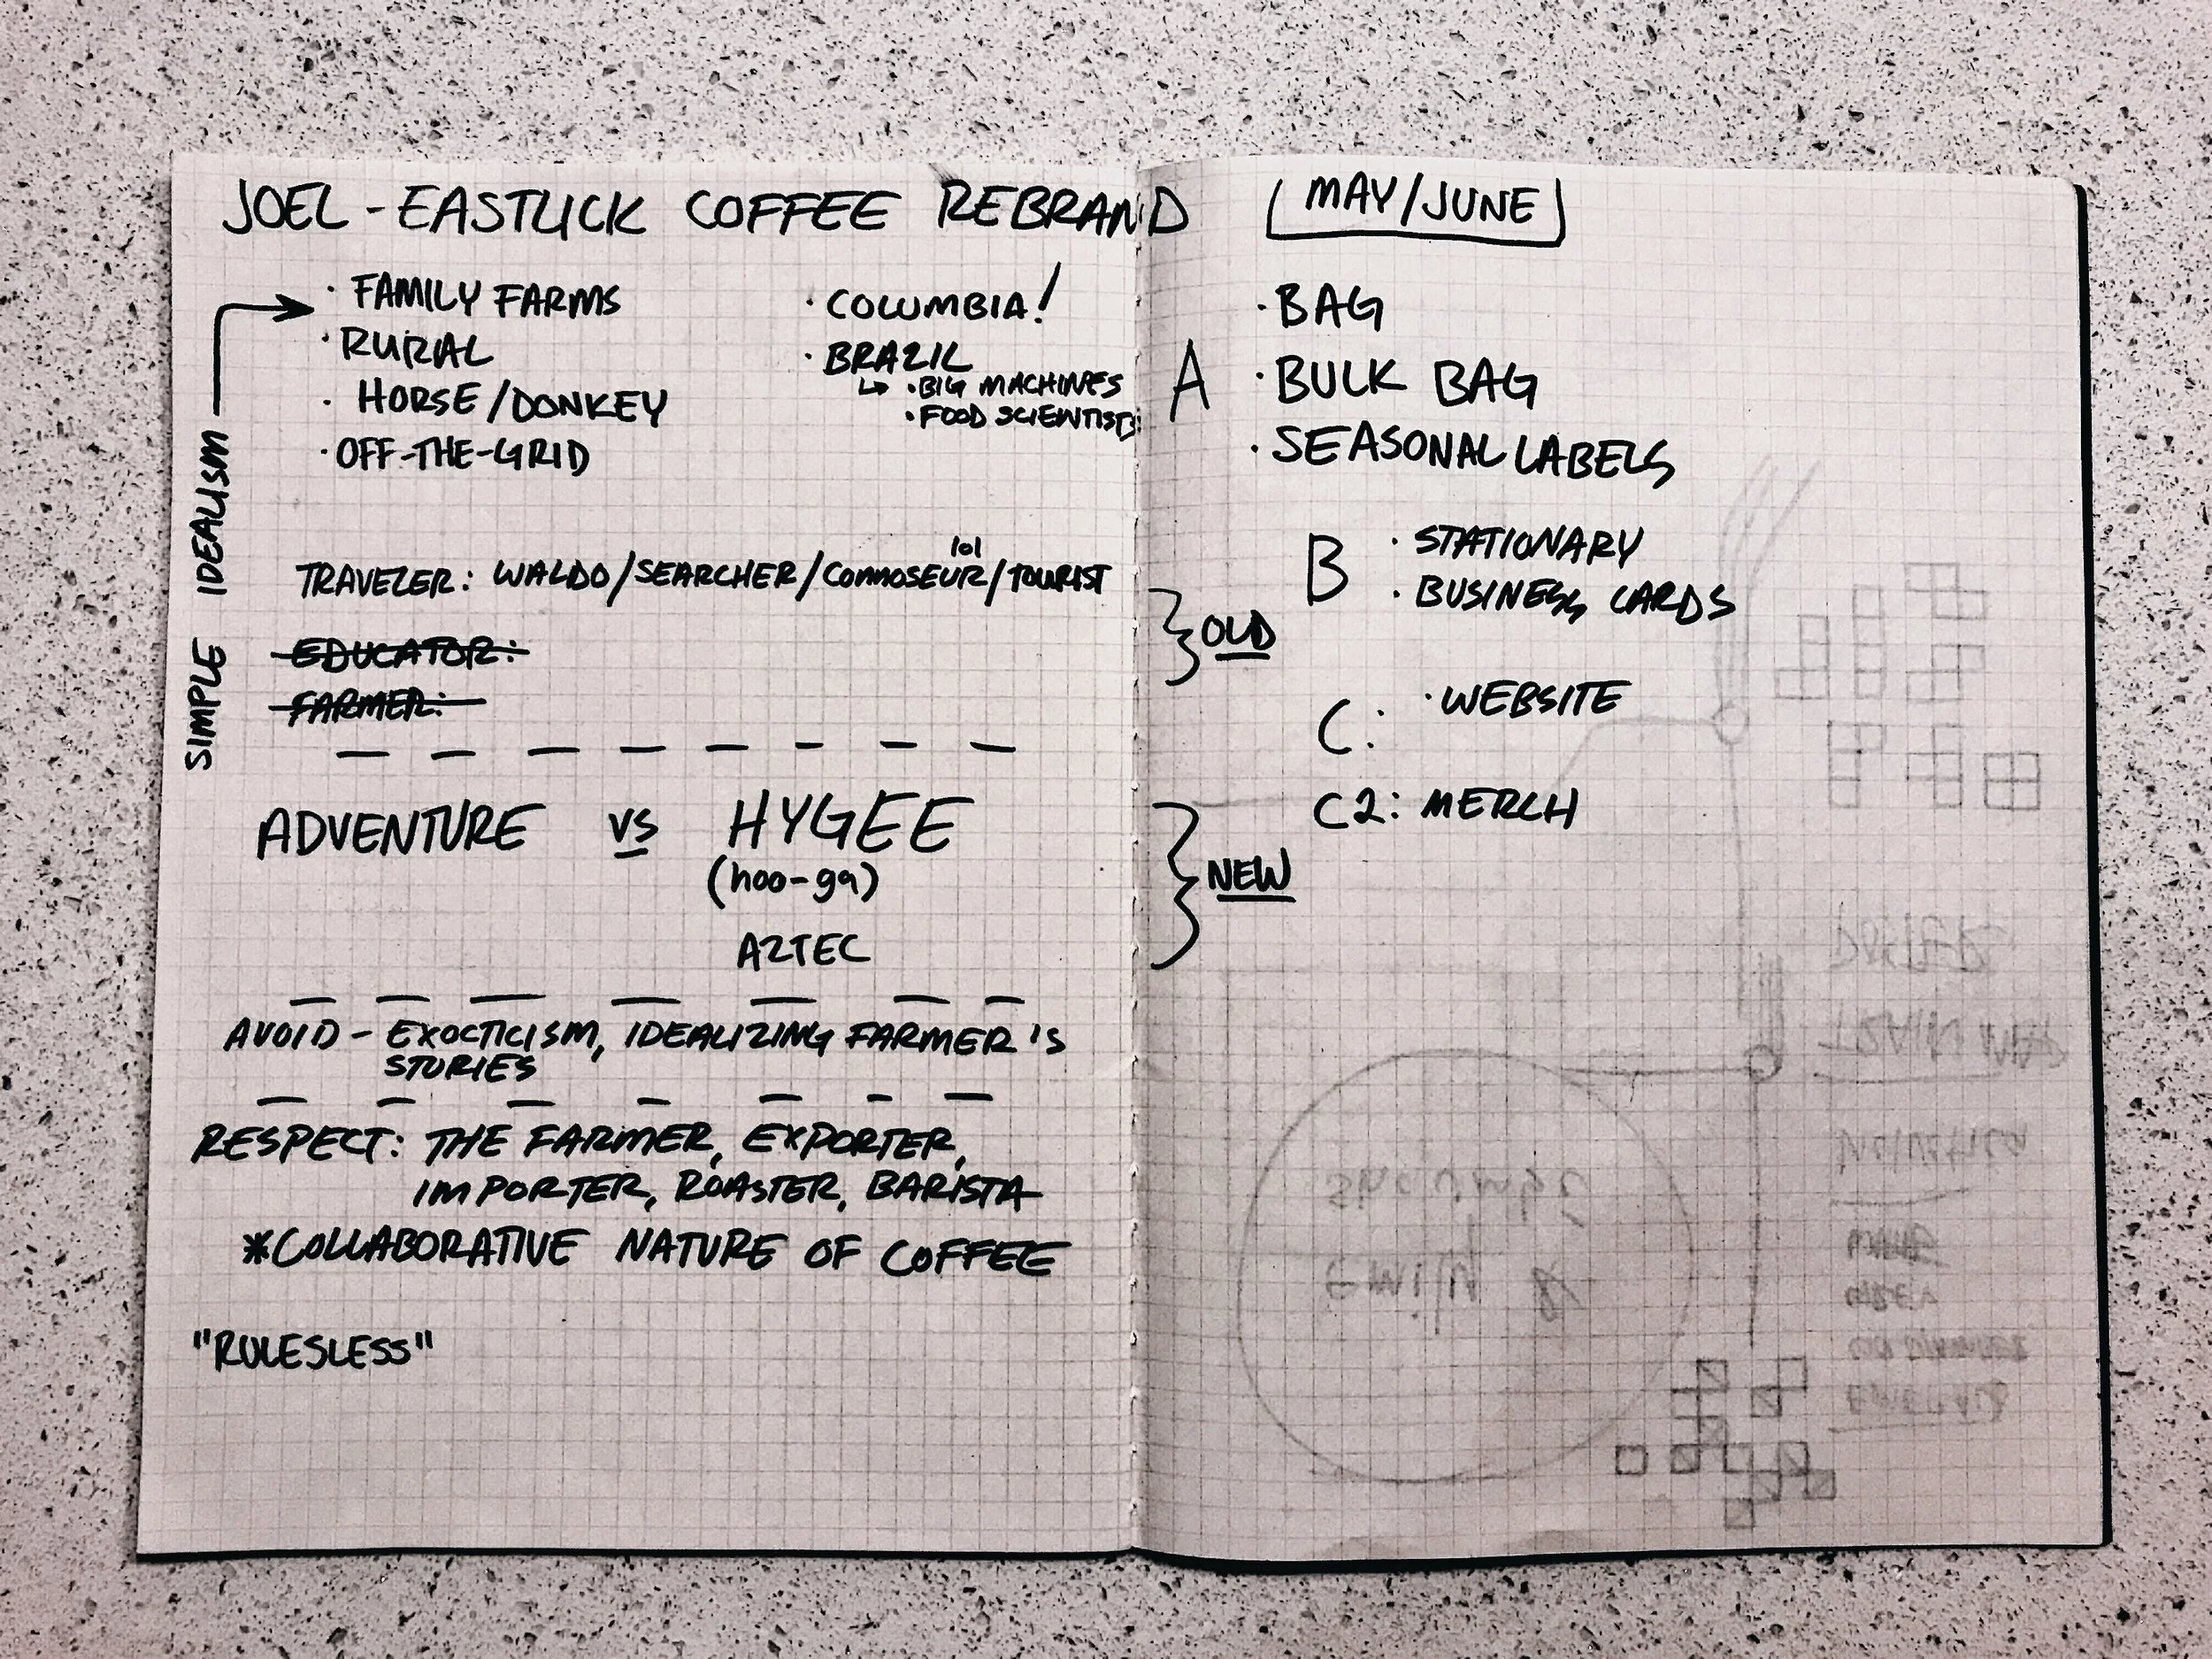 JOEL - EASTLICK COFFEE REBRAND
[MAY/JUNE]
SIMPLE IDEALISM
· FAMILY FARMS
· RURAL
· HORSE/DONKEY
· OFF-THE-GRID
· COLUMBIA!
· BRAZIL
↳ · BIG MACHINES
· FOOD SCIENTISTS
lol
TRAVELER: WALDO/SEARCHER/CONNOSEUR/TOURIST
EDUCATOR:
FARMER:
OLD
ADVENTURE VS HYGEE
(hoo-ga)
AZTEC
NEW
AVOID - EXOCTICISM, IDEALIZING FARMER'S
STORIES
RESPECT: THE FARMER, EXPORTER,
IMPORTER, ROASTER, BARISTA
*COLLABORATIVE NATURE OF COFFEE
"RULESLESS"
A
· BAG
· BULK BAG
· SEASONAL LABELS
B · STATIONARY
· BUSINESS CARDS
C: · WEBSITE
C2: MERCH